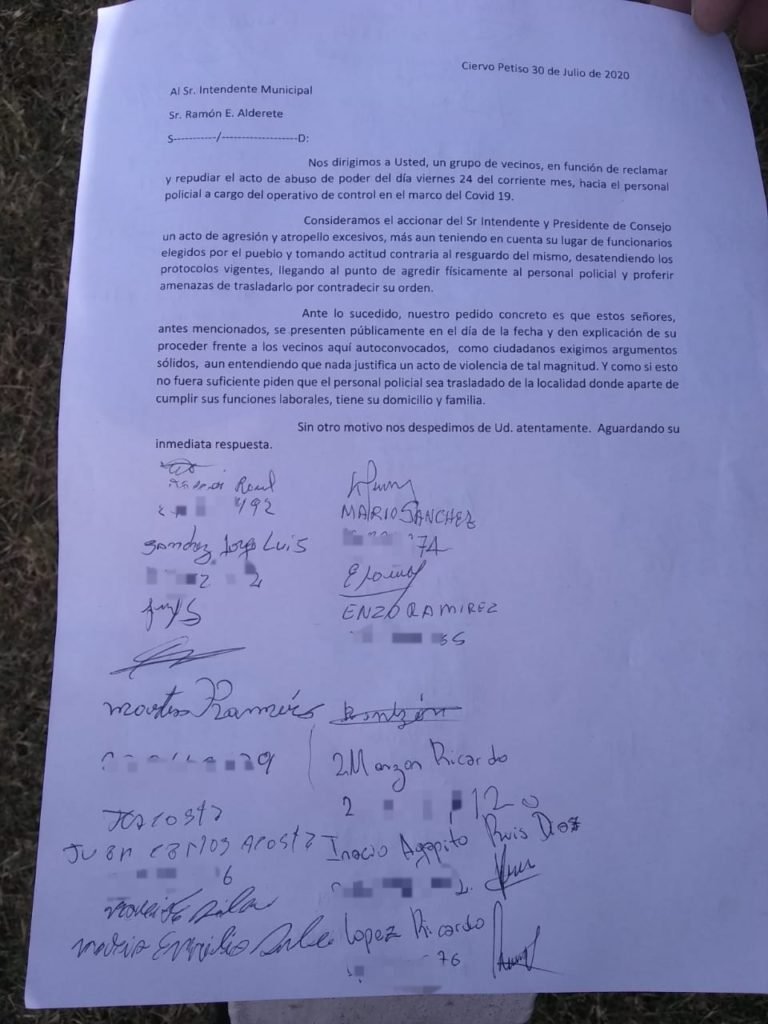 Ciervo Petiso 30 de Julio de 2020
Al Sr. Intendente Municipal
Sr. Ramón E. Alderete
S----------/------------------D:
Nos dirigimos a Usted, un grupo de vecinos, en función de reclamar
y repudiar el acto de abuso de poder del día viernes 24 del corriente mes, hacia el personal
policial a cargo del operativo de control en el marco del Covid 19.
Consideramos el accionar del Sr Intendente y Presidente de Consejo
un acto de agresión y atropello excesivos, más aun teniendo en cuenta su lugar de funcionarios
elegidos por el pueblo y tomando actitud contraria al resguardo del mismo, desatendiendo los
protocolos vigentes, llegando al punto de agredir físicamente al personal policial y proferir
amenazas de trasladarlo por contradecir su orden.
Ante lo sucedido, nuestro pedido concreto es que estos señores,
antes mencionados, se presenten públicamente en el día de la fecha y den explicación de su
proceder frente a los vecinos aquí autoconvocados, como ciudadanos exigimos argumentos
sólidos, aun entendiendo que nada justifica un acto de violencia de tal magnitud. Y como si esto
no fuera suficiente piden que el personal policial sea trasladado de la localidad donde aparte de
cumplir sus funciones laborales, tiene su domicilio y familia.
Sin otro motivo nos despedimos de Ud. atentamente. Aguardando su
inmediata respuesta.
Raul
492
MARIO SANCHEZ
74
Sanchez Jorge Luis
2 2
ENZO RAMIREZ
55
Ramirés
29
Monzon Ricardo
2 12 0
J Acosta
JUAN CARLOS ACOSTA
6
Inocio Agapito Ruis Diaz
2.
Lopez Ricardo
76